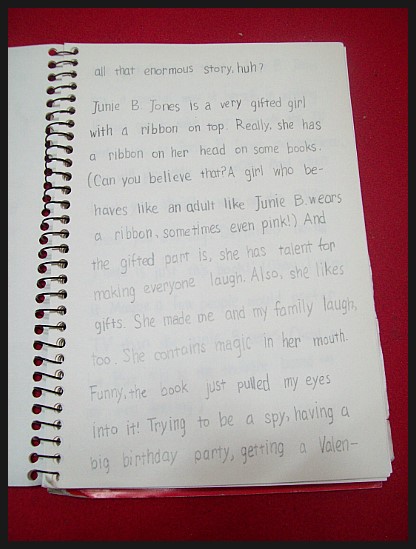 all that enormous story, huh?
Junie B. Jones is a very gifted girl
with a ribbon on top. Really, she has
a ribbon on her head on some books.
(Can you believe that? A girl who be-
haves like an adult like Junie B. wears
a ribbon, sometimes even pink!) And
the gifted part is, she has talent for
making everyone laugh. Also, she likes
gifts. She made me and my family laugh,
too. She contains magic in her mouth.
Funny, the book just pulled my eyes
into it! Trying to be a spy, having a
big birthday party, getting a Valen-